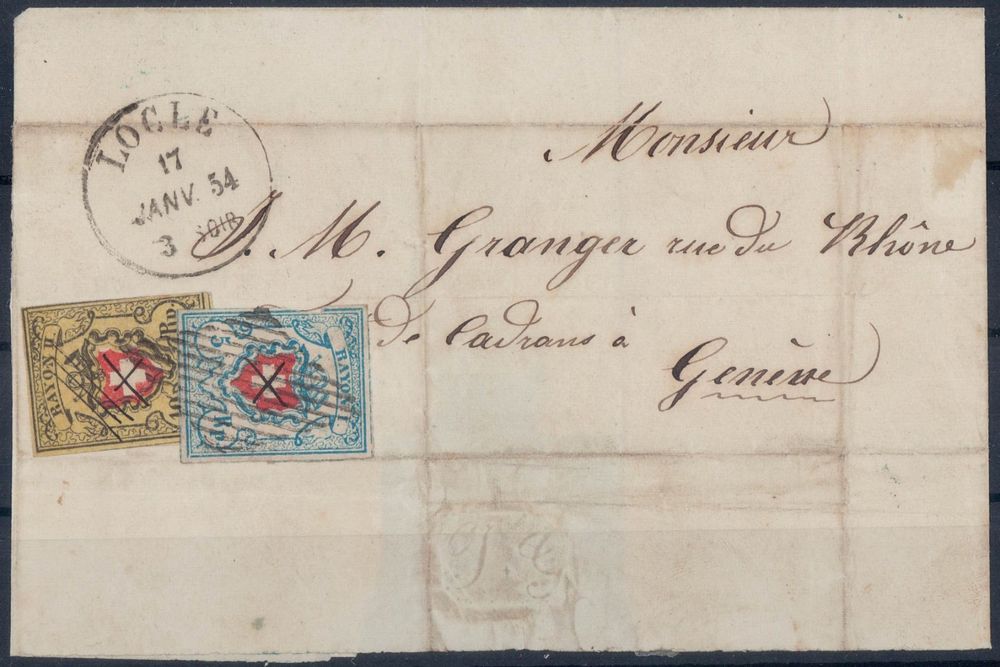 LOCLE
17
JANV. 54
3 SOIR
Monsieur
J. M. Granger rue du Rhône
de Cadrans à
Genève
RAYON II
10 Rp.
RAYON I
5 Rp.